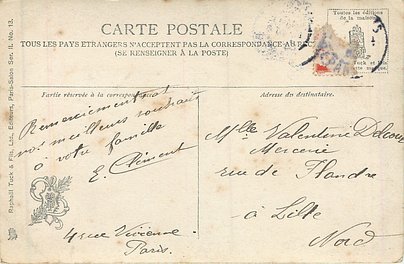 CARTE POSTALE
TOUS LES PAYS ETRANGERS N'ACCEPTENT PAS LA CORRESPONDANCE AU
(SE RENSEIGNER À LA POSTE)
Toutes les éditions
de la maison
Tuck et Fils
Partie réservée à la correspondance.
Adresse du destinataire.
Raphaël Tuck & Fils, Ltd., Editeurs, Paris-Salon Ser. II. No. 13.
Remerciements et
vos meilleurs souhaits
à votre famille
E. Clément
4 rue Vivienne
Paris.
Mlle Valentine
Mercerie
rue de Flandre
à Lille
Nord